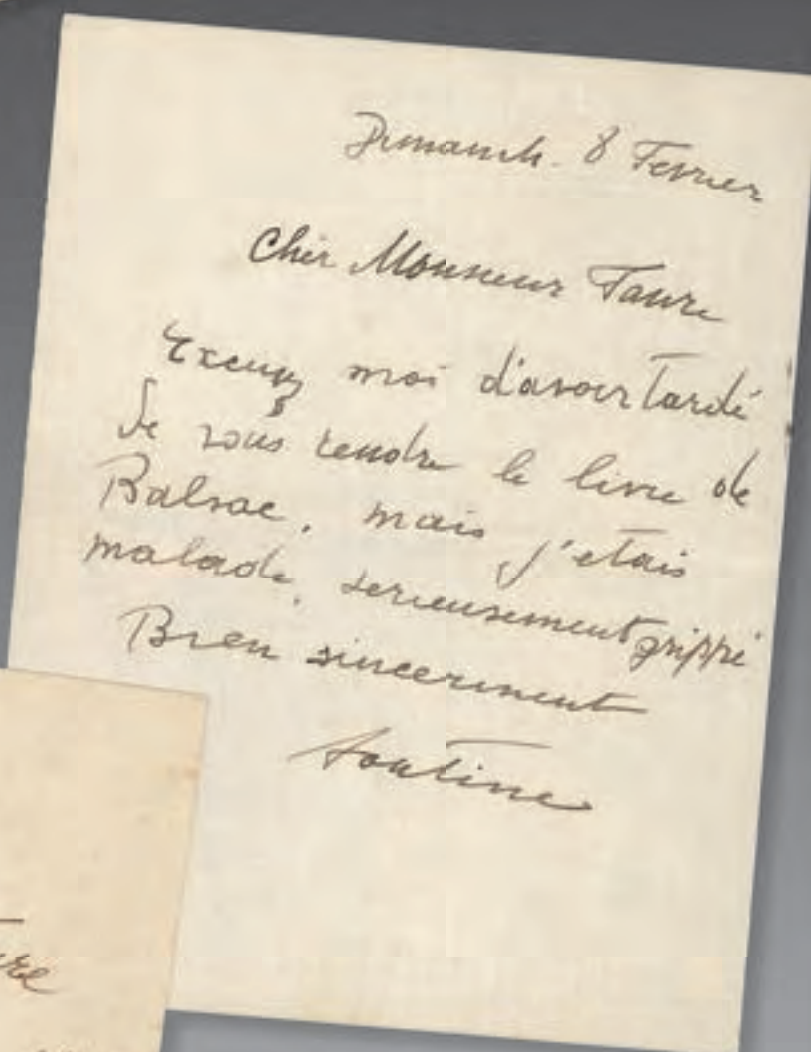 Dimanch. 8 Fevrier
Cher Monsieur Faure
Excusez moi d'avoir tardé
de vous rendre le livre de
Balsac, mais j'etais
malade, serieusement grippé
Bien sincerement
Soutine